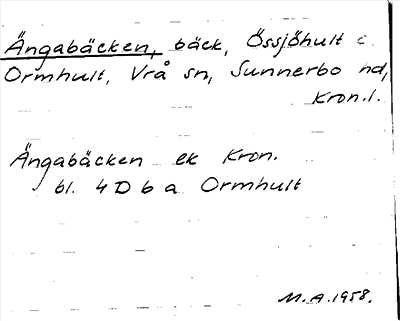 Ängabäcken, bäck, Össjöhult i
Ormhult, Vrå sn, Sunnerbo hd,
Kron.l.
Ängabäcken ek Kron.
bl. 4 D b a Ormhult
M.A. 1958.